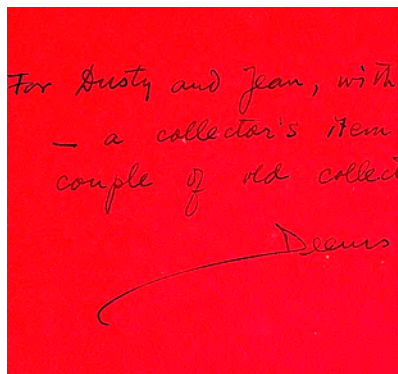 For Dusty and Jean, with
— a collector's item
couple of old collect
Deems